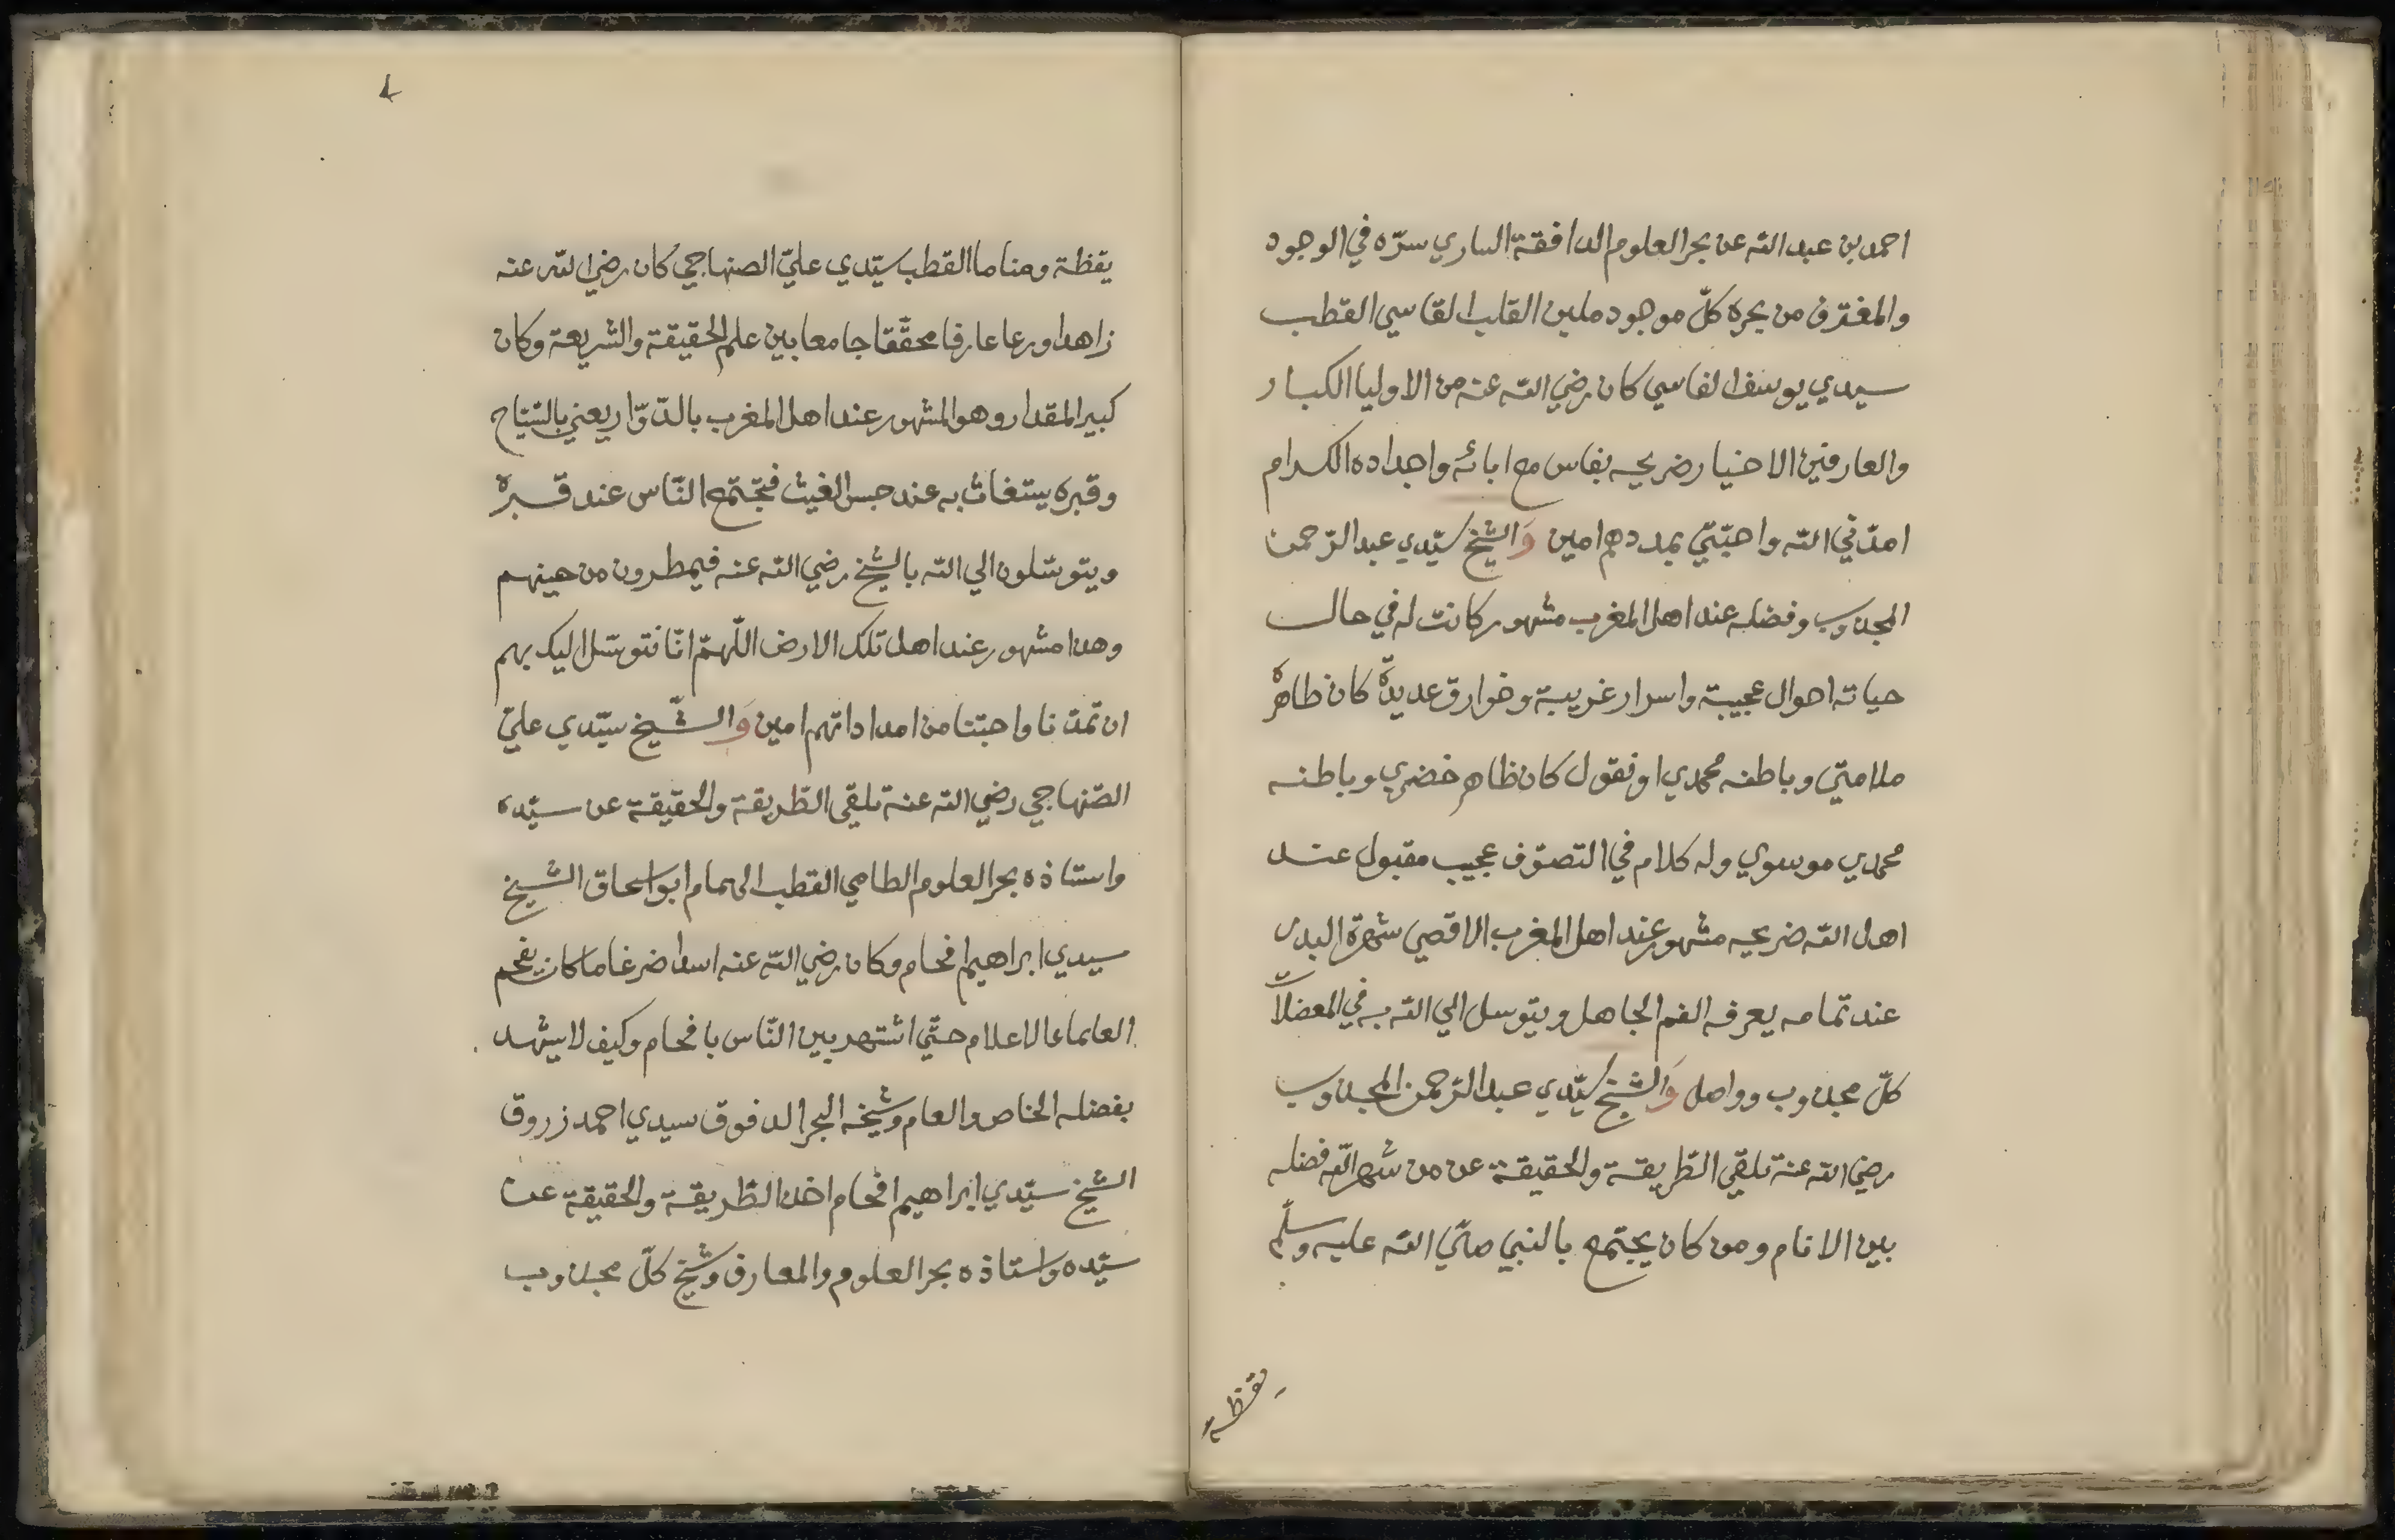 احمد بن عبد الله عن بحر العلوم الدافقة الساري سرّه في الوجود
والمغترف من بحره كلّ موجود ملين القلب القاسي القطب
سيدي يوسف الفاسي كان رضي الله عنه من الاوليا الكبار
والعارفين الاخيار ضريحه بفاس مع ابائه واجداده الكرام
امدّني الله واحبّتي بمددهم امين وَالشيخ سيّدي عبد الرّحمن
المجذوب وفضله عند اهل المغرب مشهور كانت له في حال
حياته احوال عجيبة واسرار غريبة وخوارق عديدة كان ظاهره
ملامتيّ وباطنه محمدي او نقول كان ظاهر خضري وباطنه
محمدي موسوي وله كلام في التصوّف عجيب مقبول عند
اهل الله ضريحه مشهور عند اهل المغرب الاقصي شهرة البدر
عند تمامه يعرفه الفم الجاهل ويتوسل الي الله به في المعضلات
كلّ مجذوب وواصل وَالشيخ سيّدي عبد الرّحمن المجذوب
رضي الله عنه تلقي الطّريقة والحقيقة عن من شهر الله فضله
بين الانام ومن كان يجتمع بالنبي صلّي الله عليه وسلّم
يقظة
٤
يقظة ومناما القطب سيّدي عليّ الصنهاجي كان رضي الله عنه
زاهدا ورعا عارفا محقّقا جامعا بين علم الحقيقة والشريعة وكان
كبير المقدار وهو المشهور عند اهل المغرب بالدّوّار يعني بالسّيّاح
وقبره يستغاث به عند حبس الغيث فتجتمع النّاس عند قبره
ويتوسّلون الي الله بالشيخ رضي الله عنه فيمطرون من حينهم
وهذا مشهور عند اهل تلك الارض اللّهمّ انّا نتوسّل اليك بهم
ان تمدّنا واحبّتنا من امداداتهم امين وَالشّيخ سيّدي عليّ
الصّنهاجي رضي الله عنه تلقي الطّريقة والحقيقة عن سيّده
واستاذه بحر العلوم الطامي القطب الهمام ابو اسحاق الشيخ
سيدي ابراهيم افحام وكان رضي الله عنه اسدا ضرغاما كان يفحم
العلماء الاعلام حتّي اشتهر بين النّاس بافحام وكيف لا يشهد
بفضله الخاص والعام وشيخه البحر الدفوق سيدي احمد زروق
الشيخ سيّدي ابراهيم افحام اخذ الطّريقة والحقيقة عن
سيّده واستاذه بحر العلوم والمعارف وشيخ كلّ مجذوب